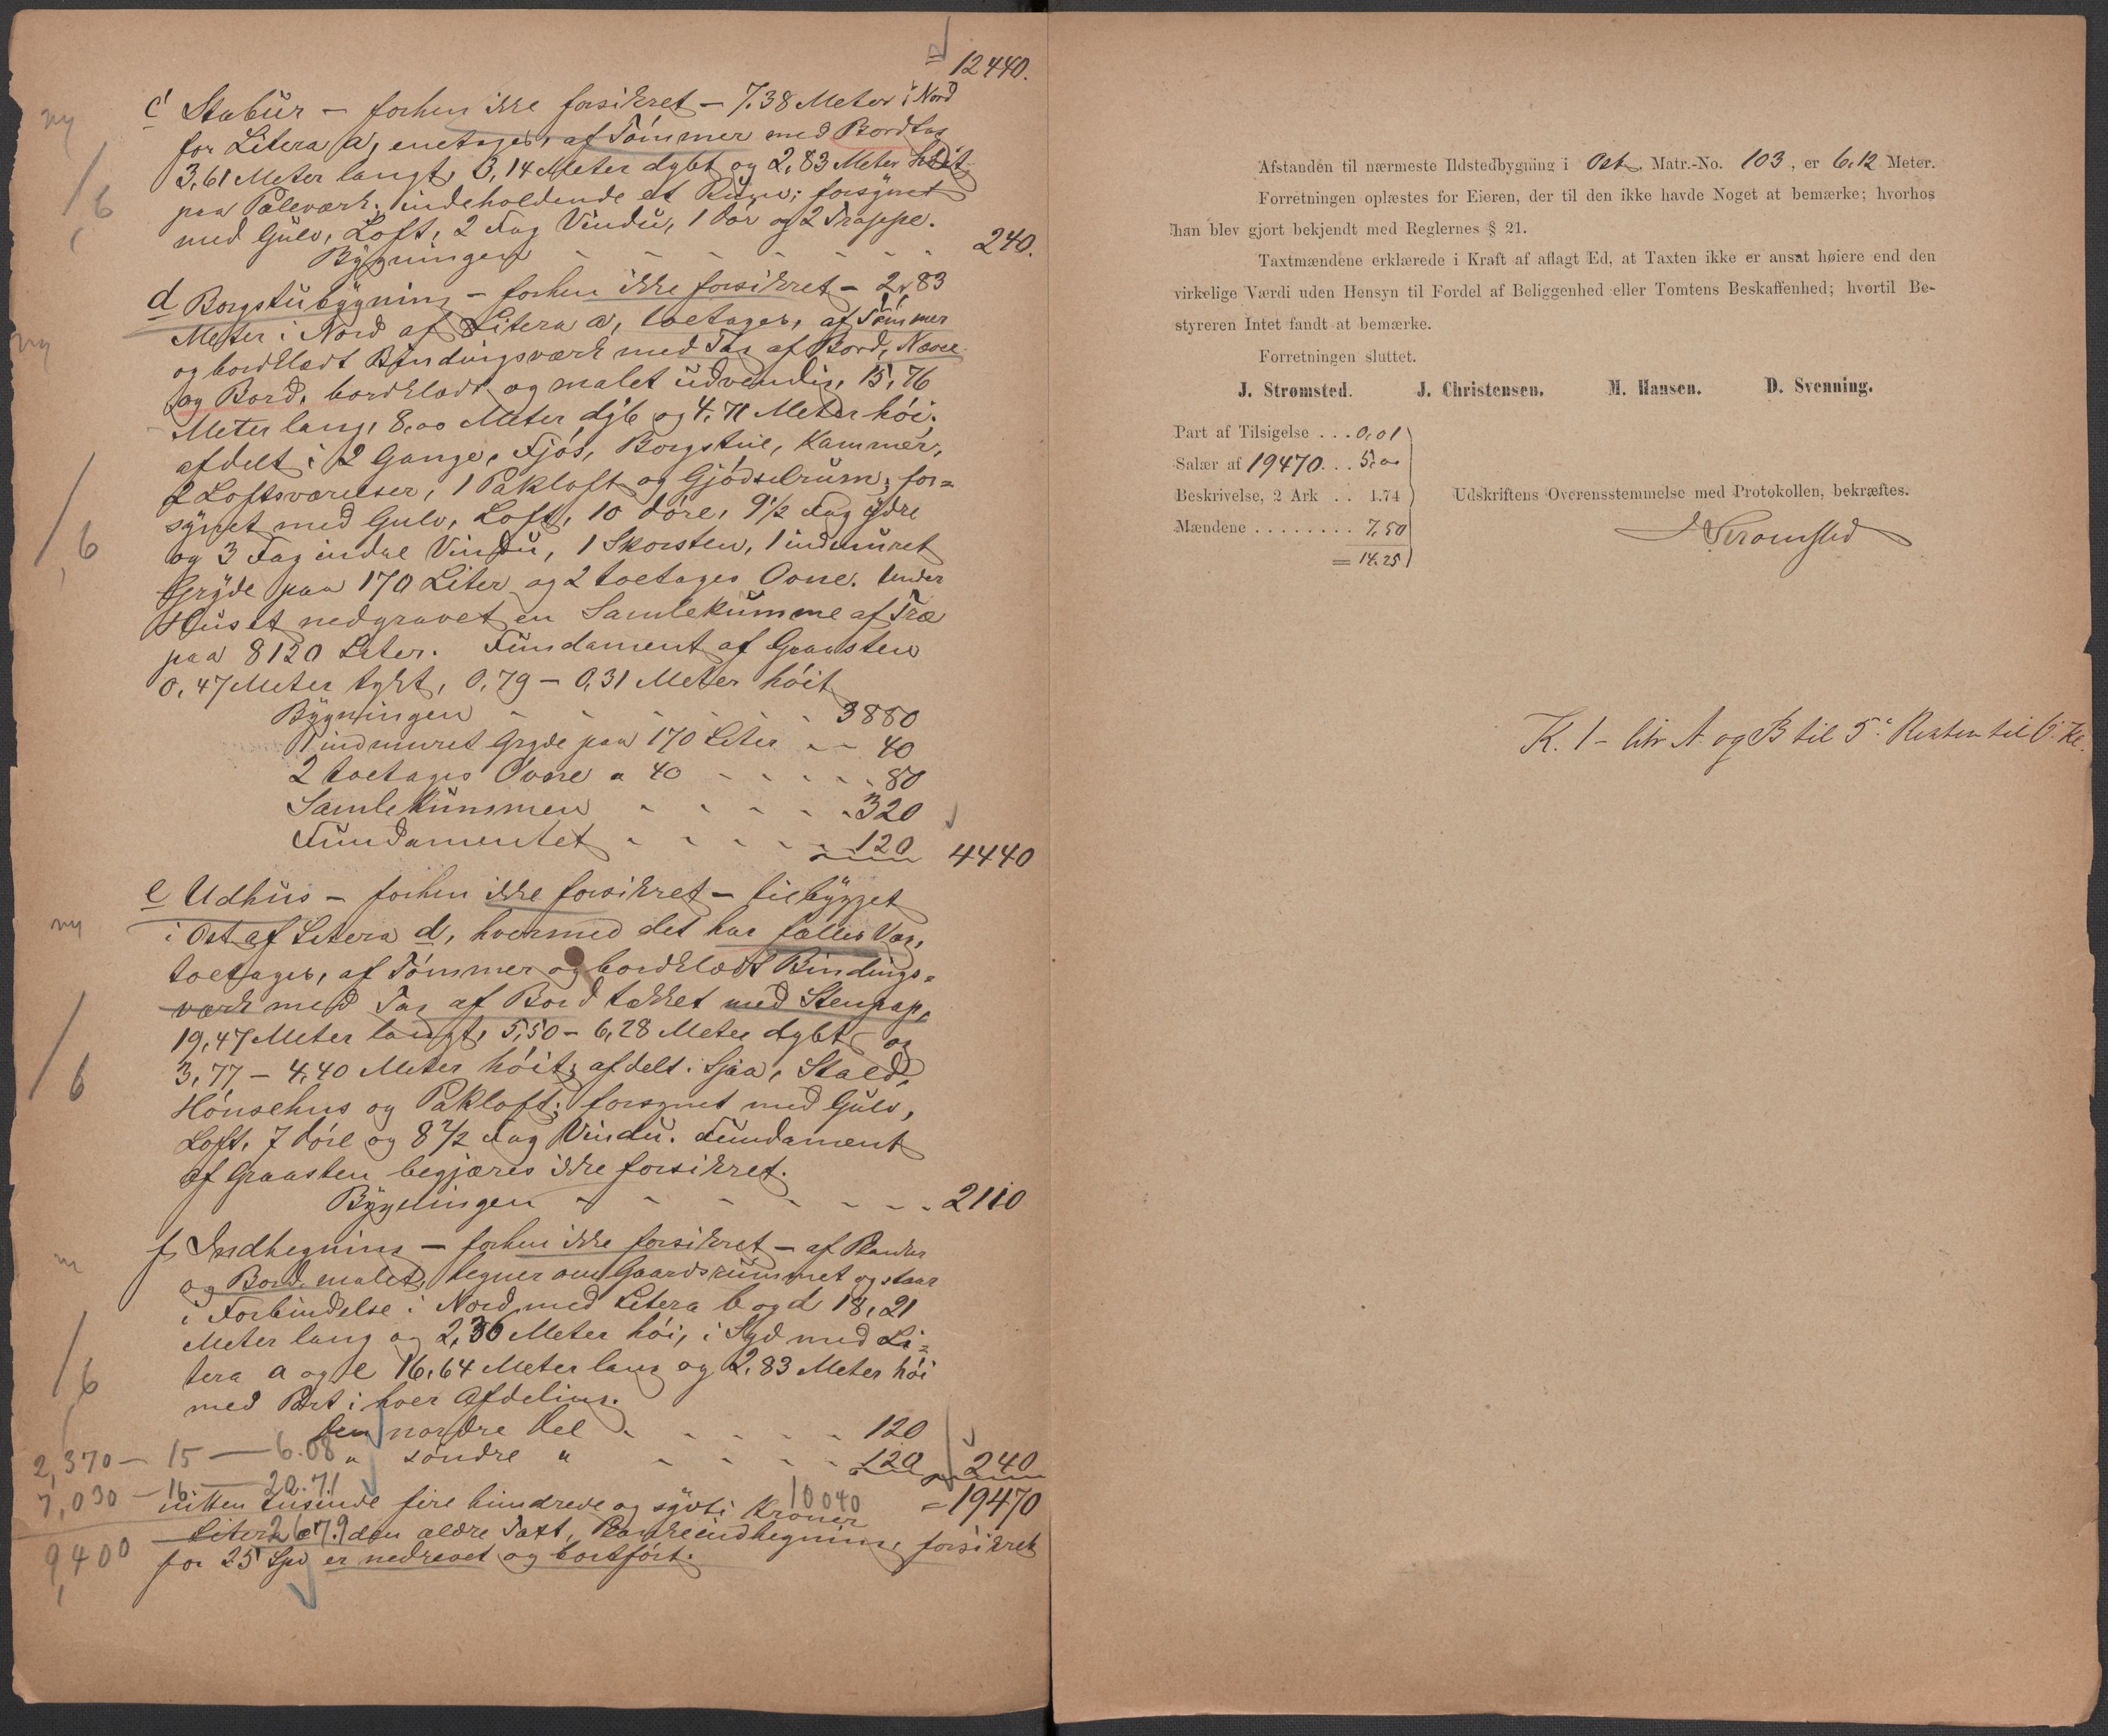 12440.
c Stabur – forhen ikke forsikret – 7.38 Meter i Nord
for Litera a, enetages, af Tømmer med Bordtag
3,61 Meter langt, 3,14 Meter dybt og 2,83 Meter høit
paa Peleværk; indeholdende et Rum; forsynet
med Gulv, Loft, 2 Fag Vindu, 1 Dør og 2 Trappe.
Bygningen - - - - - - - 240.
ny
/6
d Borgstubygning – forhen ikke forsikret – 2,83
Meter i Nord af Litera a, toetages, af Tømmer
og bordklædt Bindingsværk med Tag af Bord, Næver
og Bord, bordklædt og malet udvendig, 15,76
Meter lang, 8,00 Meter dyb og 4,71 Meter høi;
afdelt i 2 Gange, Fjøs, Borgstue, Kammer,
2 Loftsværelser, 1 Pakloft og Gjødselrum; for=
synet med Gulv, Loft, 10 Døre, 9 1/2 Fag ydre
og 3 Fag indre Vindu, 1 Skorsten, 1 indmuret
Gryde paa 170 Liter og 2 toetages Ovne. Under
Huset nedgravet en Samlekumme af Træ
paa 8120 Liter. Fundament af Graasten
0,47 Meter tykt, 0,79 – 0,31 Meter høit
ny
/6
Bygningen - - - - - 3880
1 indmuret Gryde paa 170 Liter - - 40
2 toetages Ovne a 40 - - - - - 80
Samlekummen - - - - - 320
Fundamentet - - - - - 120 4440
e Udhus – forhen ikke forsikret – tilbygget
i Ost af Litera d, hvormed det har fælles Væg,
toetages, af Tømmer og bordklædt Bindings=
værk med Tag af Bord tækket med Stenpap,
19,47 Meter langt, 5,50 – 6,28 Meter dybt og
3,77 – 4,40 Meter høit; afdelt i Sjaa, Stald,
Hønsehus og Pakloft; forsynet med Gulv,
Loft, 7 Døre og 8 1/2 Fag Vindu. Fundament
af Graasten begjæres ikke forsikret.
Bygningen - - - - - - - 2110
ny
/6
f Indhegning – forhen ikke forsikret – af Planker
og Bord malet, hegner om Gaardsrummet og staar
i Forbindelse i Nord med Litera b og d 18,21
Meter lang og 2,36 Meter høi, i Syd med Li=
tera a og e 16,64 Meter lang og 2,83 Meter høi
med Port i hver Afdeling.
/6
Den nordre Del - - - - - 120
" søndre " - - - - 120 240
2,370 – 15 – 6.08
7,030 – 16 – 20.71
nitten tusinde fire hundrede og sytti Kroner = 19470
10040
26 79
9,400
Litera den ældre Taxt, Plankeindhegning, forsikret
for 25 Spd er nedrevet og bortført.
Afstanden til nærmeste Ildstedbygning i Ost, Matr.-No. 103, er 6,12 Meter.
Forretningen oplæstes for Eieren, der til den ikke havde Noget at bemærke; hvorhos
han blev gjort bekjendt med Reglernes § 21.
Taxtmændene erklærede i Kraft af aflagt Ed, at Taxten ikke er ansat høiere end den
virkelige Værdi uden Hensyn til Fordel af Beliggenhed eller Tomtens Beskaffenhed; hvortil Be-
styreren Intet fandt at bemærke.
Forretningen sluttet.
J. Strømsted. J. Christensen. M. Hansen. D. Svenning.
Part af Tilsigelse . . . 0,01
Salær af 19470 . . . 5,00
Beskrivelse, 2 Ark . . 1.74
Mændene . . . . . . . . 7,50
= 14.25
Udskriftens Overensstemmelse med Protokollen, bekræftes.
J Strømsted
K. 1 – litr A og B til 5. Resten til 6. Kl.